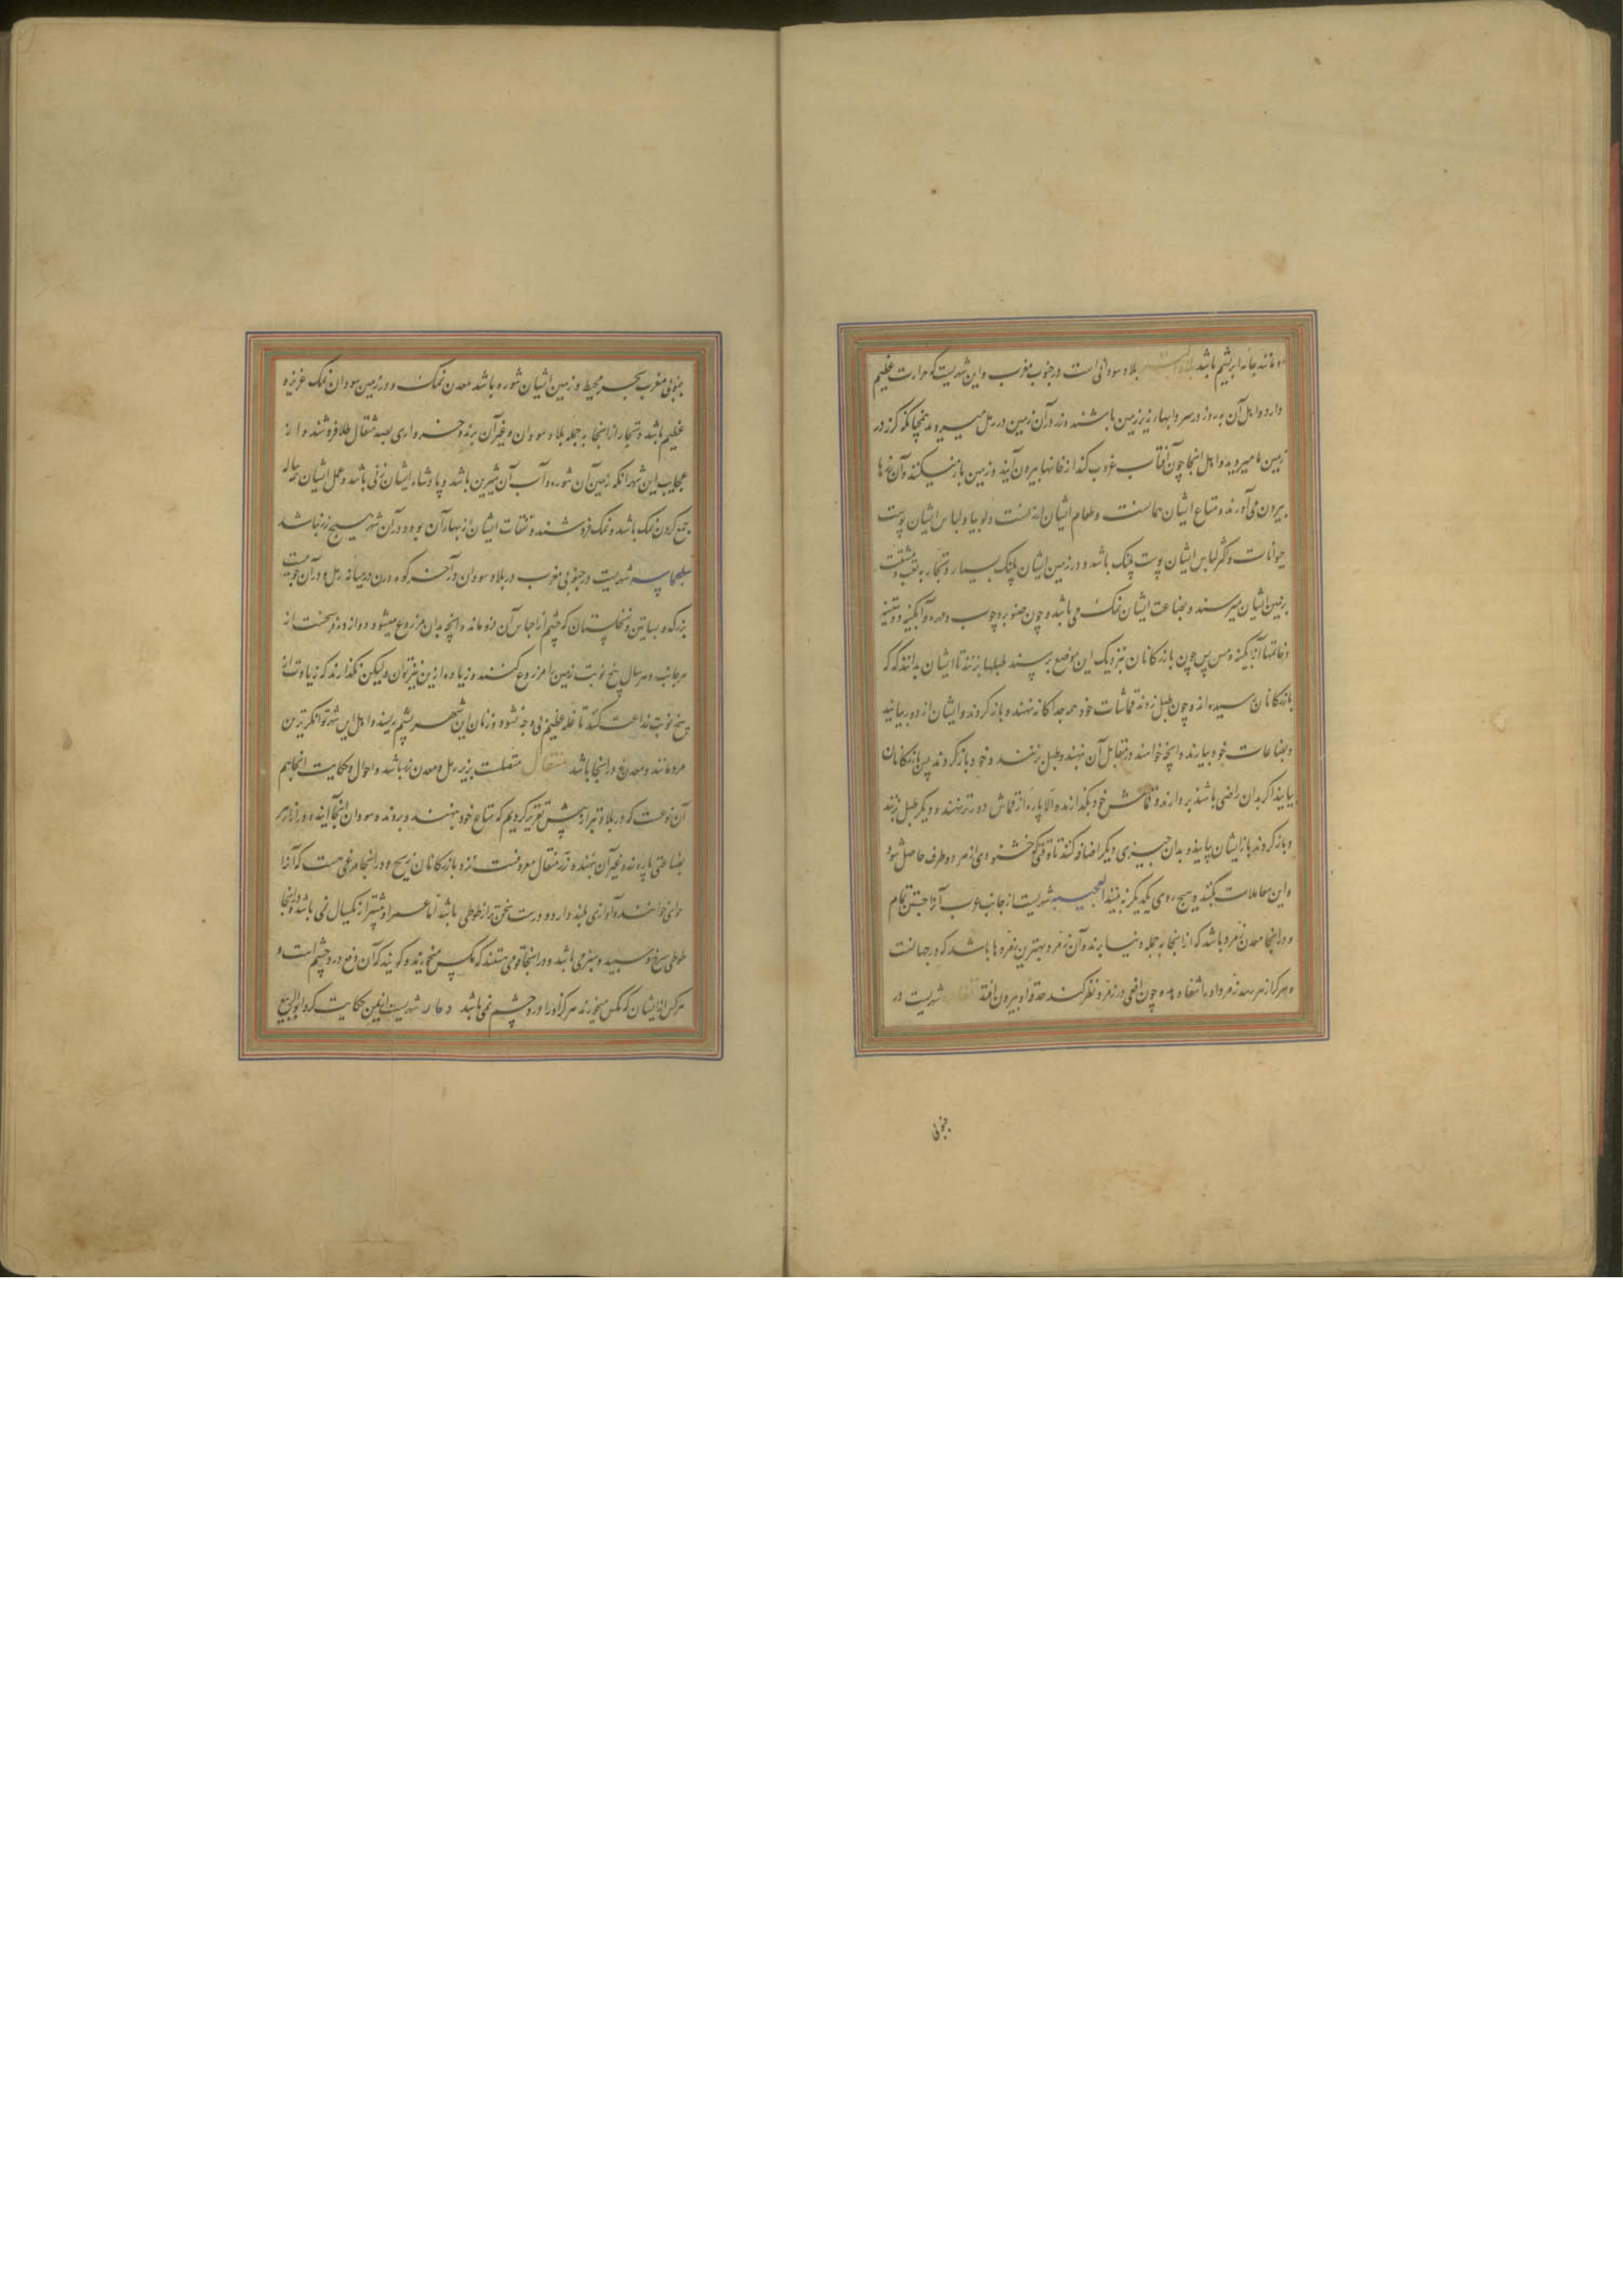 و مانند جامه ابریشم باشد بلاد التبر بلاد سودانی است در جنوب مغرب و این شهریست که حرارت عظیم
دارد و اهل آن بروز در سردابهاء زیر زمین باشند و زر در آن زمین در رمل میروید همچنانکه گزر در
زمین ما میروید و اهل اینجا چون آفتاب غروب کند از خانها بیرون آیند و زمین باز میکنند و آن زرها
بیرون می‌آورند و متاع ایشان همانست و طعام ایشان ارزنست و لوبیا و لباس ایشان پوست
حیوانات و اکثر لباس ایشان پوست پلنگ باشد و در زمین ایشان پلنگ بسیار و تجار به تعب و مشقت
بزمین ایشان میرسند و بضاعت ایشان نمک می باشد و چون صنوبر و چوب و مهره و آبگینه و
و خاتمها آبگینه و مس پس چون بازرکانان نزدیک این موضع برسند طبلها بزنند تا ایشان بدانند که
بازرکانان رسیده‌اند و چون طبل زدند قماشات خود همه جداکانه نهند و بازکردند و ایشان از دور بیایند
و بضاعات خود بیارند و آنچه خواهند در مقابل آن نهند و طبل بزنند و خود بازکردند پس بازرکانان
بیایند اکر بدان راضی باشند بردارند و قماش خود بگذارند و الا پاره از قماش دورتر نهند و دیگر طبل بزنند
و بازکردند باز ایشان بیایند و بدان چیزی دیگر اضافه کنند تا وقتی که خشنودی از هر دو طرف حاصل شود
و این معاملات بکنند و هیچ روی یکدیگر نه بینند العجیبه شهریست از جانب غرب آنرا حبشن تمام
و در اینجا معدن زمرد باشد که از اینجا بجمله دنیا برند و آن زمرد بهترین زمردها باشد که در جهانست
و هر که از زهر بعد زمرد او را شفا دهد و چون افعی در زمرد نظر کند حدقه او بیرون افتد شهریست در
جنوبی
جنوبی مغرب ببحر محیط و زمین ایشان شوره باشد معدن نمک و در زمین سودان نمک عزیز و
عظیم باشد و تجار از اینجا به جمله بلاد سودان و غیر آن برند و خرواری بصد مثقال طلا فروشند و از
عجایب این شهر آنکه زمین آن شوره و آب آن شیرین باشد و پادشاه ایشان زنی باشد و عمل ایشان همه ساله
جمع کردن نمک باشد و نمک فروشند و نفقات ایشان از بهاء آن بود و در آن شهر هیچ زرع نباشد
سلجماسه شهریست در جنوبی مغرب در بلاد سودان در آخر کوه درن در میانه رمل و در آن جوییست
بزرک و بساتین و نخلستان که چشم از اجناس آن فروماند و آنچه بدان مزروع میشود دوازده فرسخست از
هر جانب و هر سال پنج نوبت زمین را مزروع کنند و زیاده از این نیز توان ولیکن نگذارند که زیادت از
پنج نوبت زراعت کند تا غله عظیم بی وجه نشود و زنان این شهر پشم ریسند و اهل این شهر توانگرترین
مردمانند و معدن در اینجا باشد متصلست بزیر رمل و معدن زر باشد و احوال و حکایت اینجا هم
آن نوعست که در بلاد تبر از پیش تقریر کردیم که متاع خود بنهند و بروند و سودان اینجا آیند و در ازاء هر
بضاعتی پاره زر و غیر آن بنهند و زر مثقال معروفست نزد بازرکانان و در اینجا مرغی هست که آنرا
خوانند و آوازی بلند دارد و درست سخن‌تر از طوطی باشد اما عمر او بیشتر از یکسال نمی باشد و در اینجا
طوطی سرخ و سپید و سبز می باشد و در اینجا قومی هستند که مگس میخورند و گویند که آن دفع درد چشم است و
هر کس از ایشان که مگس میخورند هرگز او را درد چشم نمی باشد شهریست از یمن حکایت کرد ابو الربیع